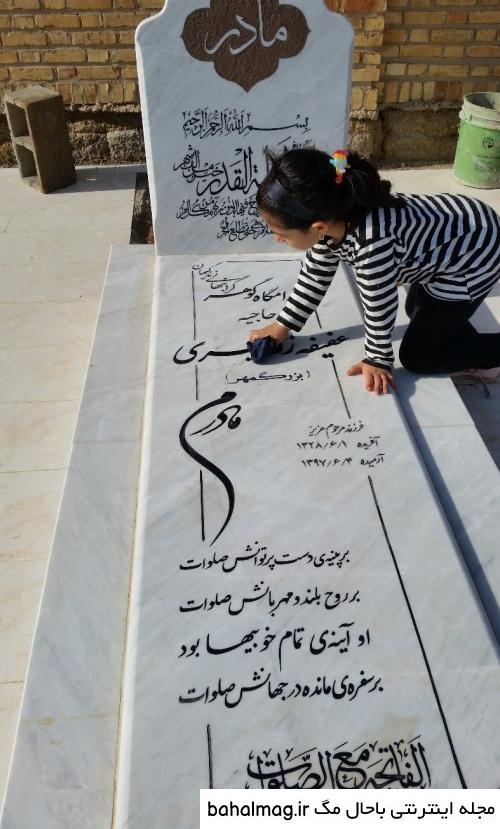 مادر
بسم الله الرحمن الرحیم
القدر
فرزند نیکیان
گرانبهای
گوهر
حاجیه
عفیفه
(بزرگمهر)
مادرم
فرزند مرحوم عزیز
آفریده ۱۳۲۸/۶/۱
آرمیده ۱۳۹۷/۶/۴
بر پینه‌ی دست پرتوانش صلوات
بر روح بلند و مهربانش صلوات
او آینه‌ی تمام خوبیها بود
بر سفره‌ی مانده در جهانش صلوات
الفاتحة مع الصلوات
مجله اینترنتی باحال مگ bahalmag.ir